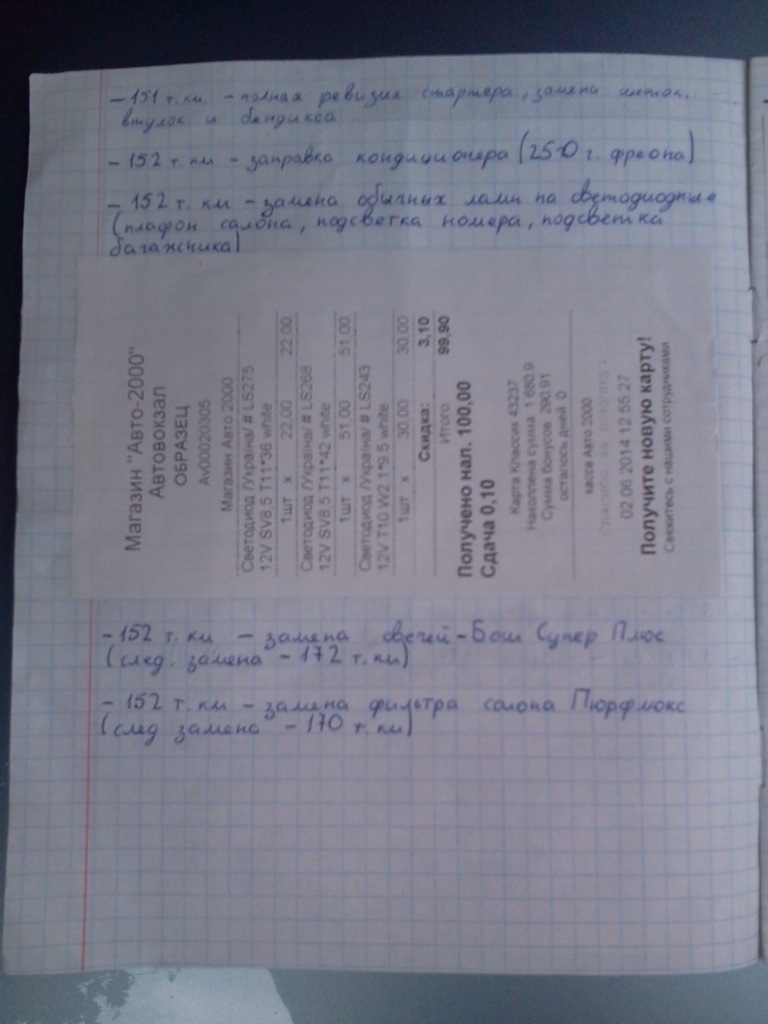 - 151 т. км. - полная ревизия стартера, замена щеток,
втулок и бендикса
- 152 т. км - заправка кондиционера (250 г. фреона)
- 152 т. км - замена обычных ламп на светодиодные
(плафон салона, подсветка номера, подсветка
багажника)
Магазин "Авто-2000"
Автовокзал
ОБРАЗЕЦ
Av00020305
Магазин Авто 2000
Светодиод /Україна/ # LS275
12V SV8,5 T11*36 white
1шт х 22.00 22.00
Светодиод /Україна/ # LS268
12V SV8,5 T11*42 white
1шт х 51.00 51.00
Светодиод /Україна/ # LS243
12V T10 W2.1*9.5 white
1шт х 30.00 30.00
Скидка: 3,10
Итого 99,90
Получено нал. 100,00
Сдача 0,10
Карта Классик 43237
Накоплена сумма 1 680,9
Сумма бонусов 290,91
осталось дней 0
касса Авто 2000
Спасибо за покупку!
02.06.2014 12:55:27
Получите новую карту!
Свяжитесь с нашими сотрудниками
- 152 т. км - замена свечей - Бош Супер Плюс
(след. замена - 172 т. км)
- 152 т. км - замена фильтра салона Пюрфлюкс
(след замена - 170 т. км)